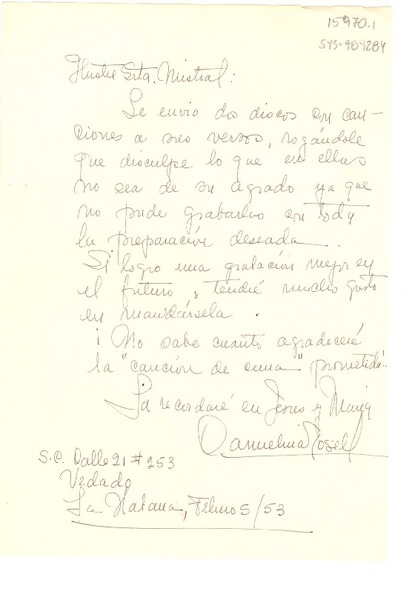 15970.1
SYS-989284
Ilustre Srta. Mistral:
Le envio dos discos con can-
ciones a sus versos, rogándole
que disculpe lo que en ellas
no sea de su agrado ya que
no pude grabarlos con toda
la preparación deseada.
Si logro una grabación mejor en
el futuro, tendré mucho gusto
en mandársela.
¡No sabe cuanto agradeceré
la "canción de cuna" prometida.
La recordaré en Jesus y Maria
Carmelina Rosell
S.C. Calle 21 # 253
Vedado
La Habana, Febrero 5/53